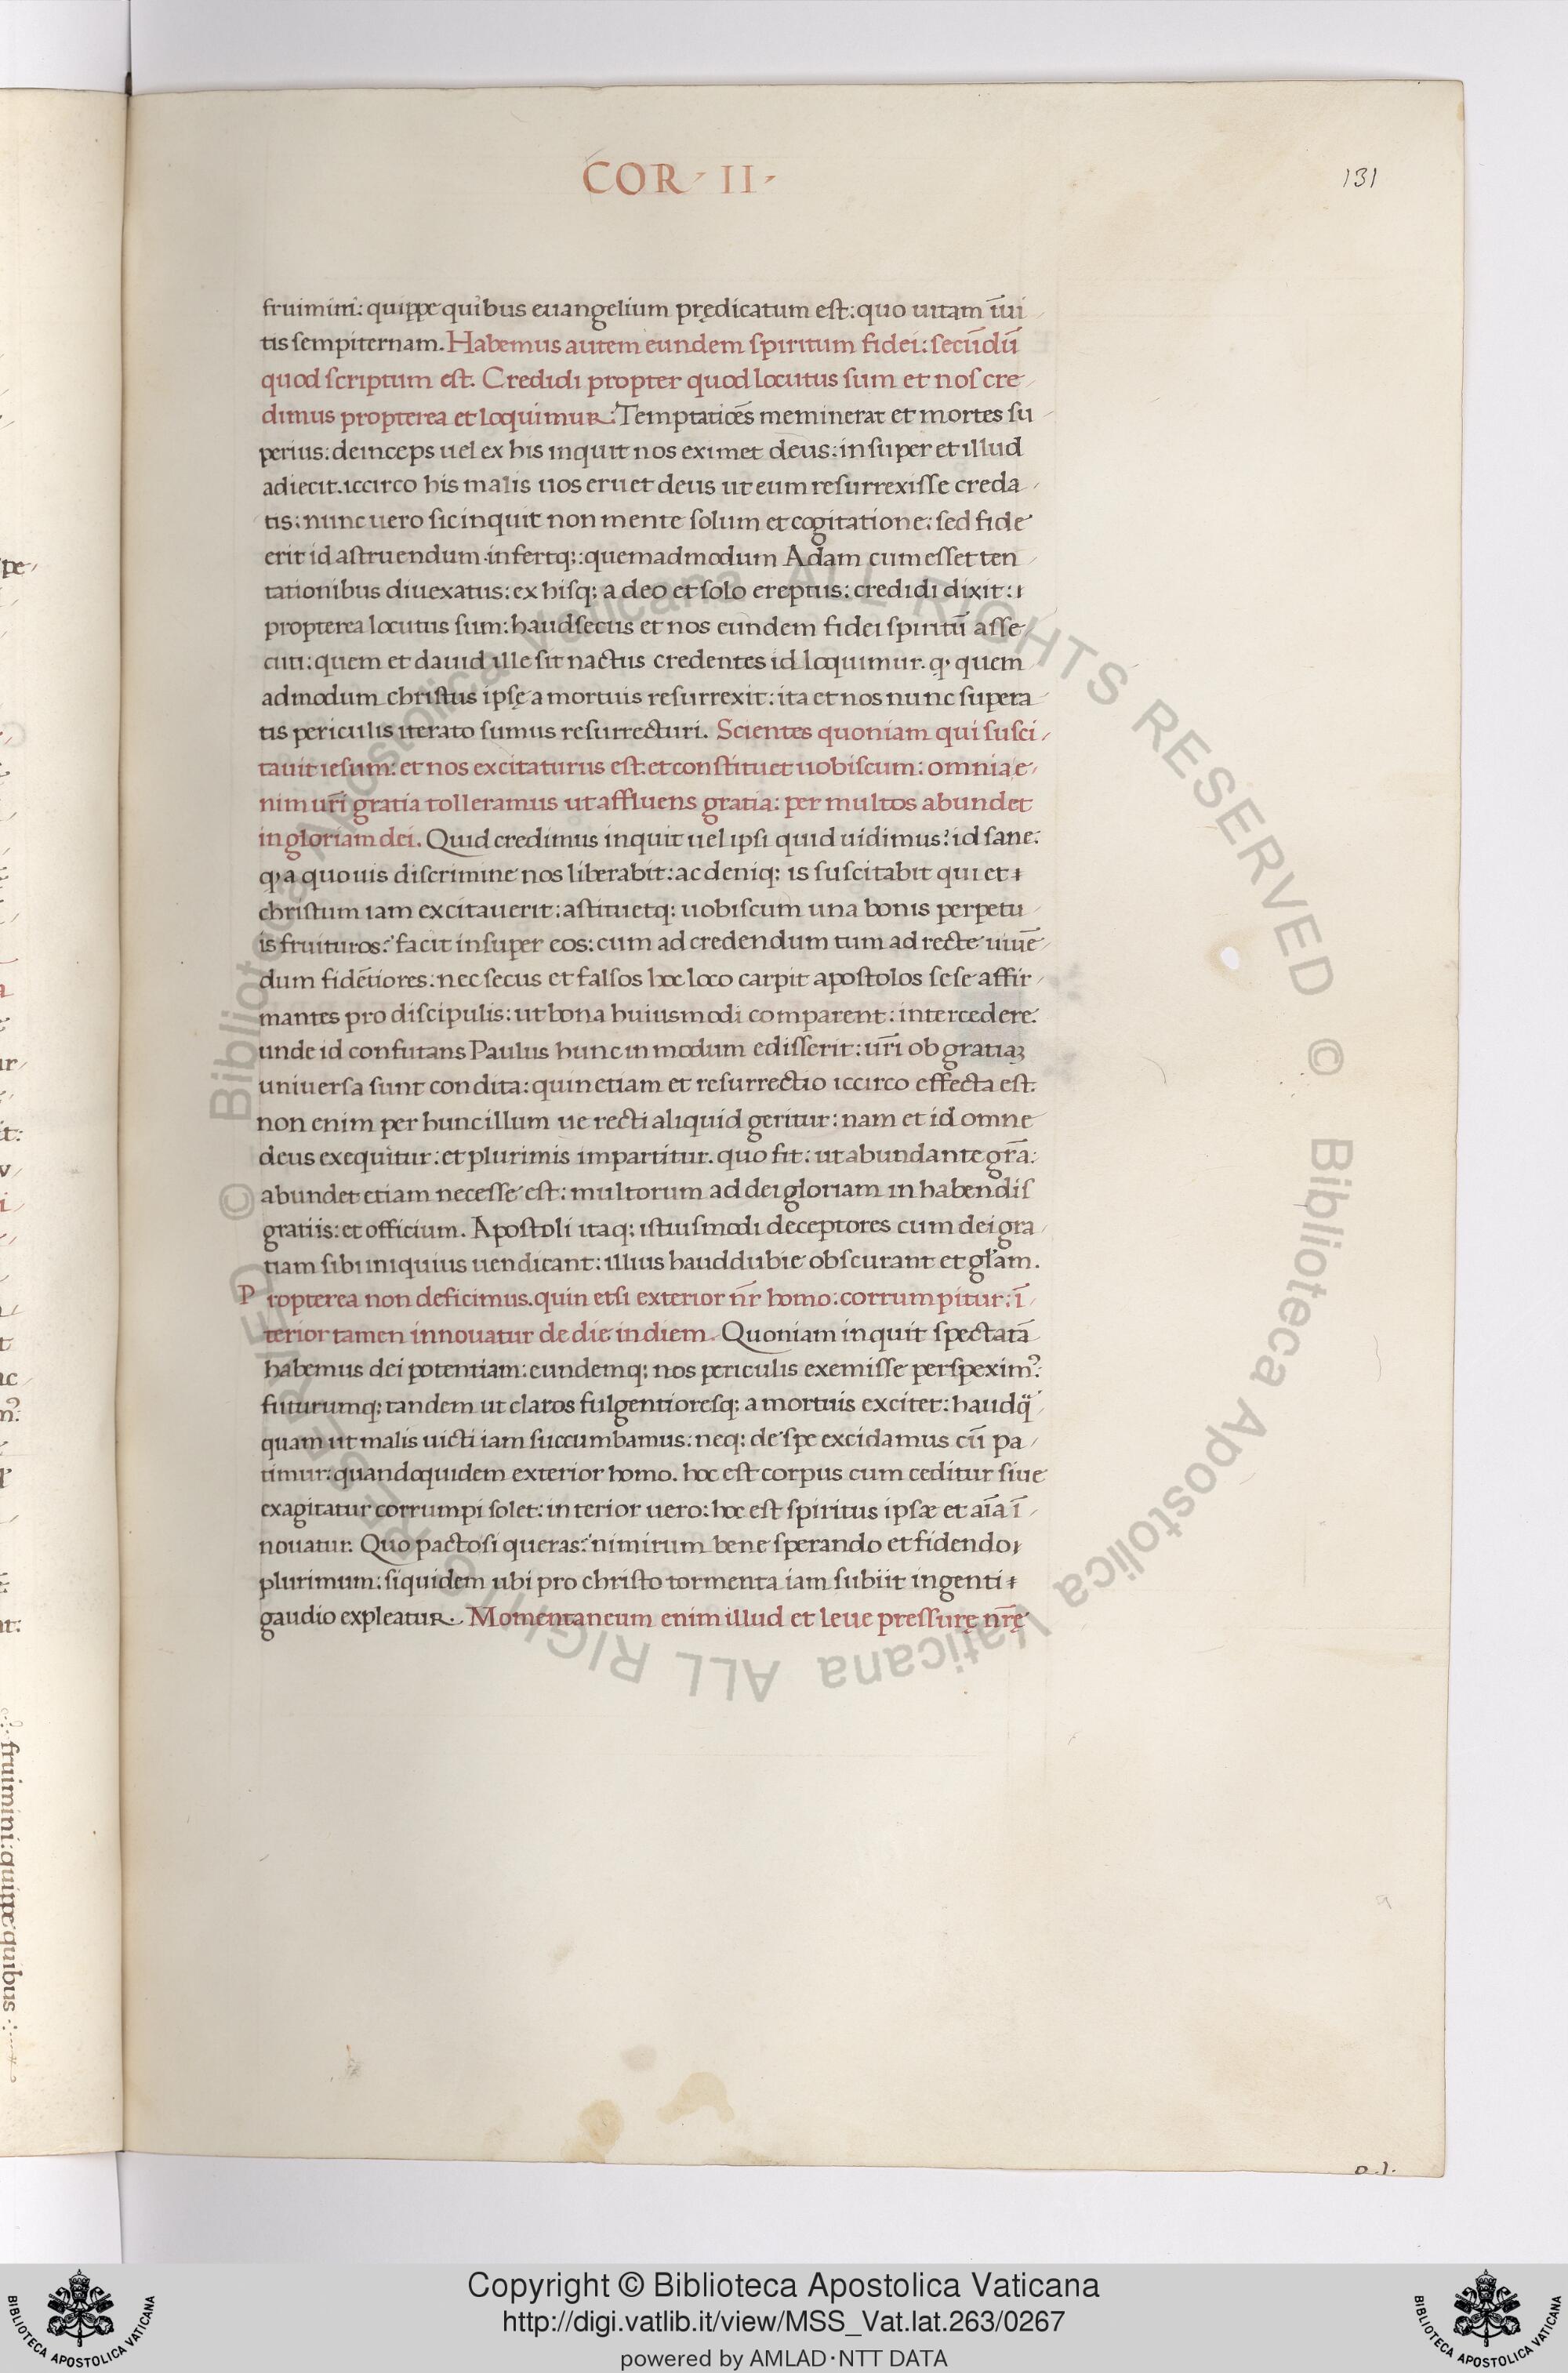 COR · II ·
131
fruimini: quippe quibus euangelium prędicatum est: quo uitam īui
tis sempiternam. Habemus autem eundem spiritum fidei: secūdū
quod scriptum est. Credidi propter quod locutus sum et nos cre
dimus propterea et loquimur: Temptatiōēs meminerat et mortes su
perius: deinceps uel ex his inquit nos eximet deus: insuper et illud
adiecit. iccirco his malis uos eruet deus ut eum resurrexisse creda
tis: nunc uero sic inquit non mente solum et cogitatione: sed fide
erit id astruendum. infertq;: quemadmodum Adam cum esset ten
tationibus diuexatus: ex hisq; a deo et solo ereptus: credidi dixit:
propterea locutus sum: haud secus et nos eundem fidei spiritū asse
cuti: quem et dauid ille sit nactus credentes id loquimur. q quem
admodum christus ipsę a mortuis resurrexit: ita et nos nunc supera
tis periculis iterato sumus resurrecturi. Scientes quoniam qui susci
tauit iesum: et nos excitaturus est: et constituet uobiscum: omnia e
nim ur̄i gratia tolleramus ut affluens gratia: per multos abundet
in gloriam dei. Quid credimus inquit uel ipsi quid uidimus? id sane:
q a quouis discrimine nos liberabit: ac deniq; is suscitabit qui et
christum iam excitauerit: astituetq; uobiscum una bonis perpetu
is fruituros: facit insuper eos: cum ad credendum tum ad recte uiuē
dum fidētiores: nec secus et falsos hoc loco carpit apostolos sese affir
mantes pro discipulis: ut bona huiusmodi comparent: intercedere:
unde id confutans Paulus hunc in modum edisserit: ur̄i ob gratiaꝫ
uniuersa sunt condita: quin etiam et resurrectio iccirco effecta est:
non enim per hunc illum ue recti aliquid geritur: nam et id omne
deus exequitur: et plurimis impartitur. quo fit: ut abundante gr̄a:
abundet etiam necesse est: multorum ad dei gloriam in habendis
gratiis: et officium. Apostoli itaq; istiusmodi deceptores cum dei gra
tiam sibi iniquius uendicant: illius haud dubie obscurant et gl̄am.
Propterea non deficimus. quin etsi exterior nr̄ homo: corrumpitur: ī
terior tamen innouatur de die in diem. Quoniam inquit spectatā
habemus dei potentiam: eundemq; nos periculis exemisse perspexim9:
futurumq; tandem ut claros fulgentioresq; a mortuis excitet: haudq̈
quam ut malis uicti iam succumbamus: neq; de spe excidamus cū pa
timur: quandoquidem exterior homo. hoc est corpus cum ceditur siue
exagitatur corrumpi solet: interior uero: hoc est spiritus ipsæ et aīa ī
nouatur. Quo pacto si queras: nimirum bene sperando et fidendo
plurimum: siquidem ubi pro christo tormenta iam subiit ingenti
gaudio expleatur. Momentaneum enim illud et leue pressurę nr̄ę
fruimini: quippe quibus
Copyright © Biblioteca Apostolica Vaticana
http://digi.vatlib.it/view/MSS_Vat.lat.263/0267
powered by AMLAD·NTT DATA
BIBLIOTECA APOSTOLICA VATICANA
BIBLIOTECA APOSTOLICA VATICANA
© Biblioteca Apostolica Vaticana ALL RIGHTS RESERVED © Biblioteca Apostolica Vaticana ALL RIGHTS RESERVED